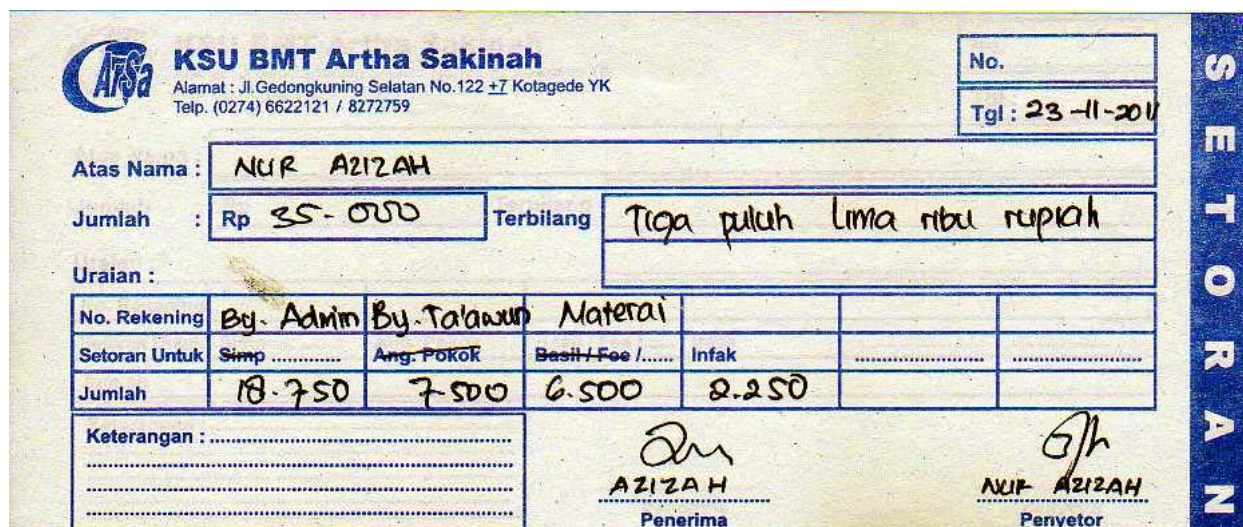 ARSa
KSU BMT Artha Sakinah
Alamat : Jl.Gedongkuning Selatan No.122 +7 Kotagede YK
Telp. (0274) 6622121 / 8272759
No.
Tgl : 23-11-2011
Atas Nama : NUR AZIZAH
Jumlah : Rp 35-000 Terbilang Tiga puluh Lima ribu rupiah
Uraian :
No. Rekening By. Admin By. Ta'awun Materai
Setoran Untuk Simp ............. Ang. Pokok Basil / Fee /...... Infak ...................... ......................
Jumlah 18.750 7.500 6.500 2.250
Keterangan : ..................................................
AZIZAH NUR AZIZAH
Penerima Penyetor
SETORAN